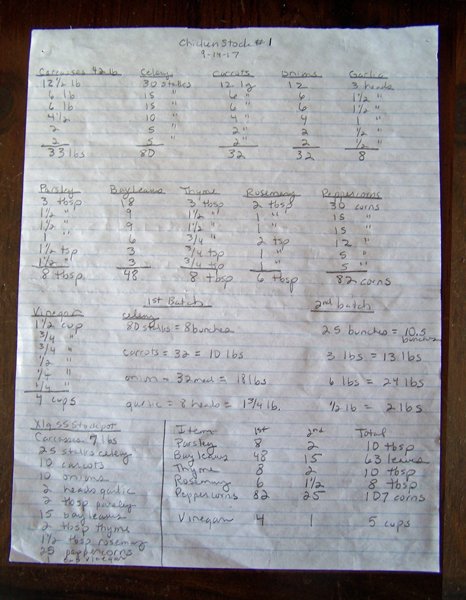 Chicken Stock #1
9-14-17
Carcasses 42 lb Celery Carrots Onions Garlic
12 1/2 lb 30 stalks 12 lg 12 3 heads
6 lb 15 " 6 " 6 1 1/2 "
6 lb 15 " 6 " 6 1 1/2 "
4 1/2 10 " 4 " 4 1 "
2 5 " 2 " 2 1/2 "
2 5 " 2 2 1/2 "
33 lbs 80 32 32 8
Parsley Bay leaves Thyme Rosemary Peppercorns
3 tbsp 18 3 tbsp 2 tbsp 30 corns
1 1/2 " 9 1 1/2 " 1 " 15 "
1 1/2 " 9 1 1/2 " 1 " 15 "
1 " 6 3/4 " 2 tsp 12 "
1 1/2 tsp 3 3/4 tsp 1 " 5 "
1 1/2 " 3 3/4 " 1 " 5 "
8 tbsp 48 8 tbsp 6 tbsp 82 corns
1st Batch 2nd batch
Vinegar celery
1 1/2 cup 80 stalks = 8 bunches 2.5 bunches = 10.5 bunches
3/4 "
3/4 " carrots = 32 = 10 lbs 3 lbs = 13 lbs
1/2 "
1/4 " onion = 32 med = 18 lbs 6 lbs = 24 lbs
1/4 "
4 cups garlic = 8 heads = 1 3/4 lb. 1/2 lb = 2 lbs
Xlg SS Stockpot Item 1st 2nd Total
Carcasses 7 lbs Parsley 8 2 10 tbsp
25 stalks celery Bay leaves 48 15 63 leaves
10 carrots Thyme 8 2 10 tbsp
10 onions Rosemary 6 1 1/2 8 tbsp
2 heads garlic Peppercorns 82 25 107 corns
2 tbsp parsley
15 bay leaves Vinegar 4 1 5 cups
2 tbsp thyme
1 1/2 tbsp rosemary
25 peppercorns
1 cup vinegar